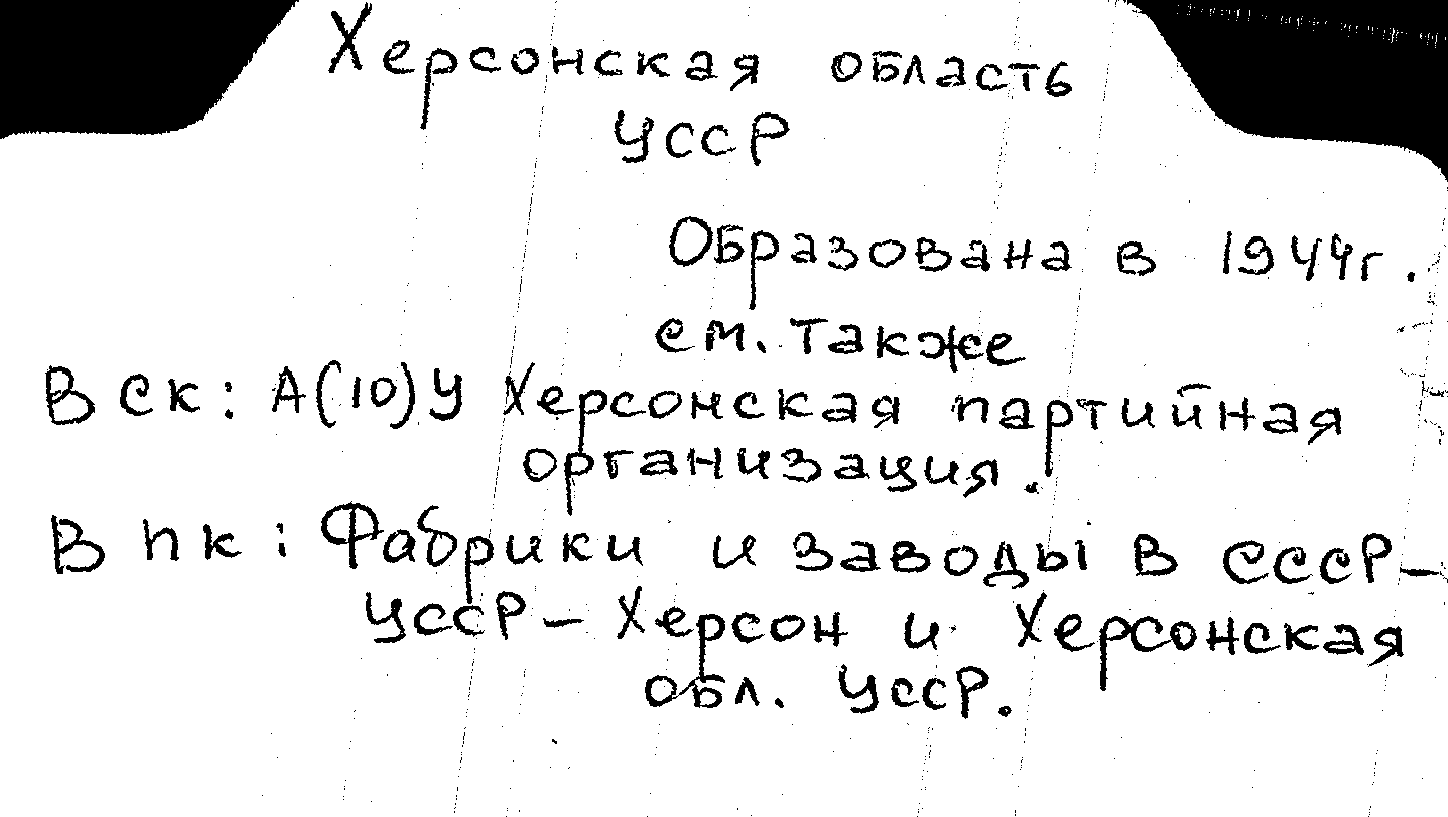 Херсонская область
УССР
Образована в 1944г.
см. также
В СК: А(10)У Херсонская партийная
организация.
В ПК: Фабрики и заводы в СССР-
УССР-Херсон и Херсонская
обл. УССР.